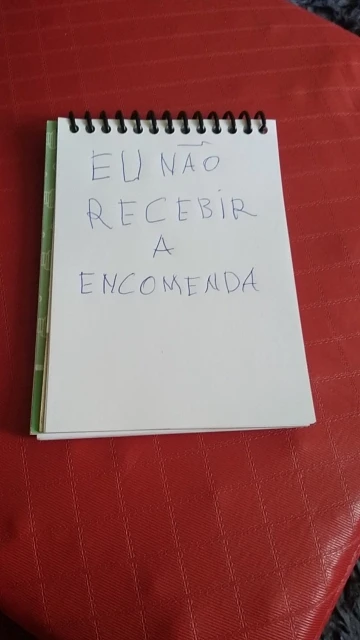 EU NÃO
RECEBIR
A
ENCOMENDA